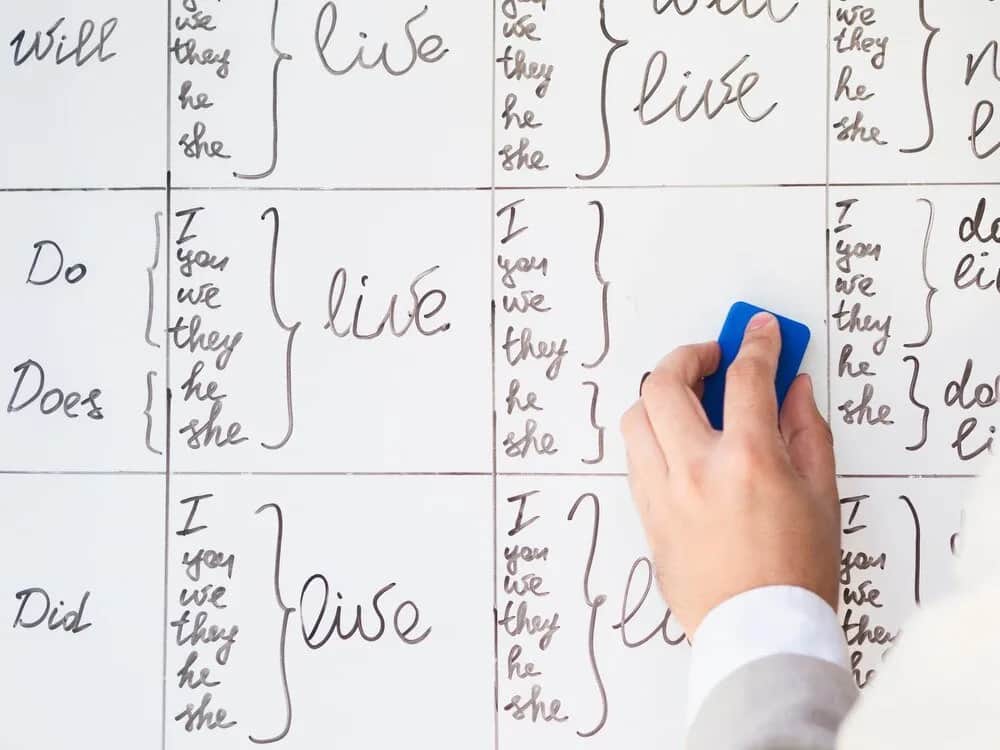 Will
we
they
he
she
live
we
they
he
she
live
we
they
he
she
Do
Does
I
you
we
they
he
she
live
I
you
we
they
he
she
I
you
we
they
he
she
Did
I
you
we
they
he
she
live
I
you
we
they
he
she
I
you
we